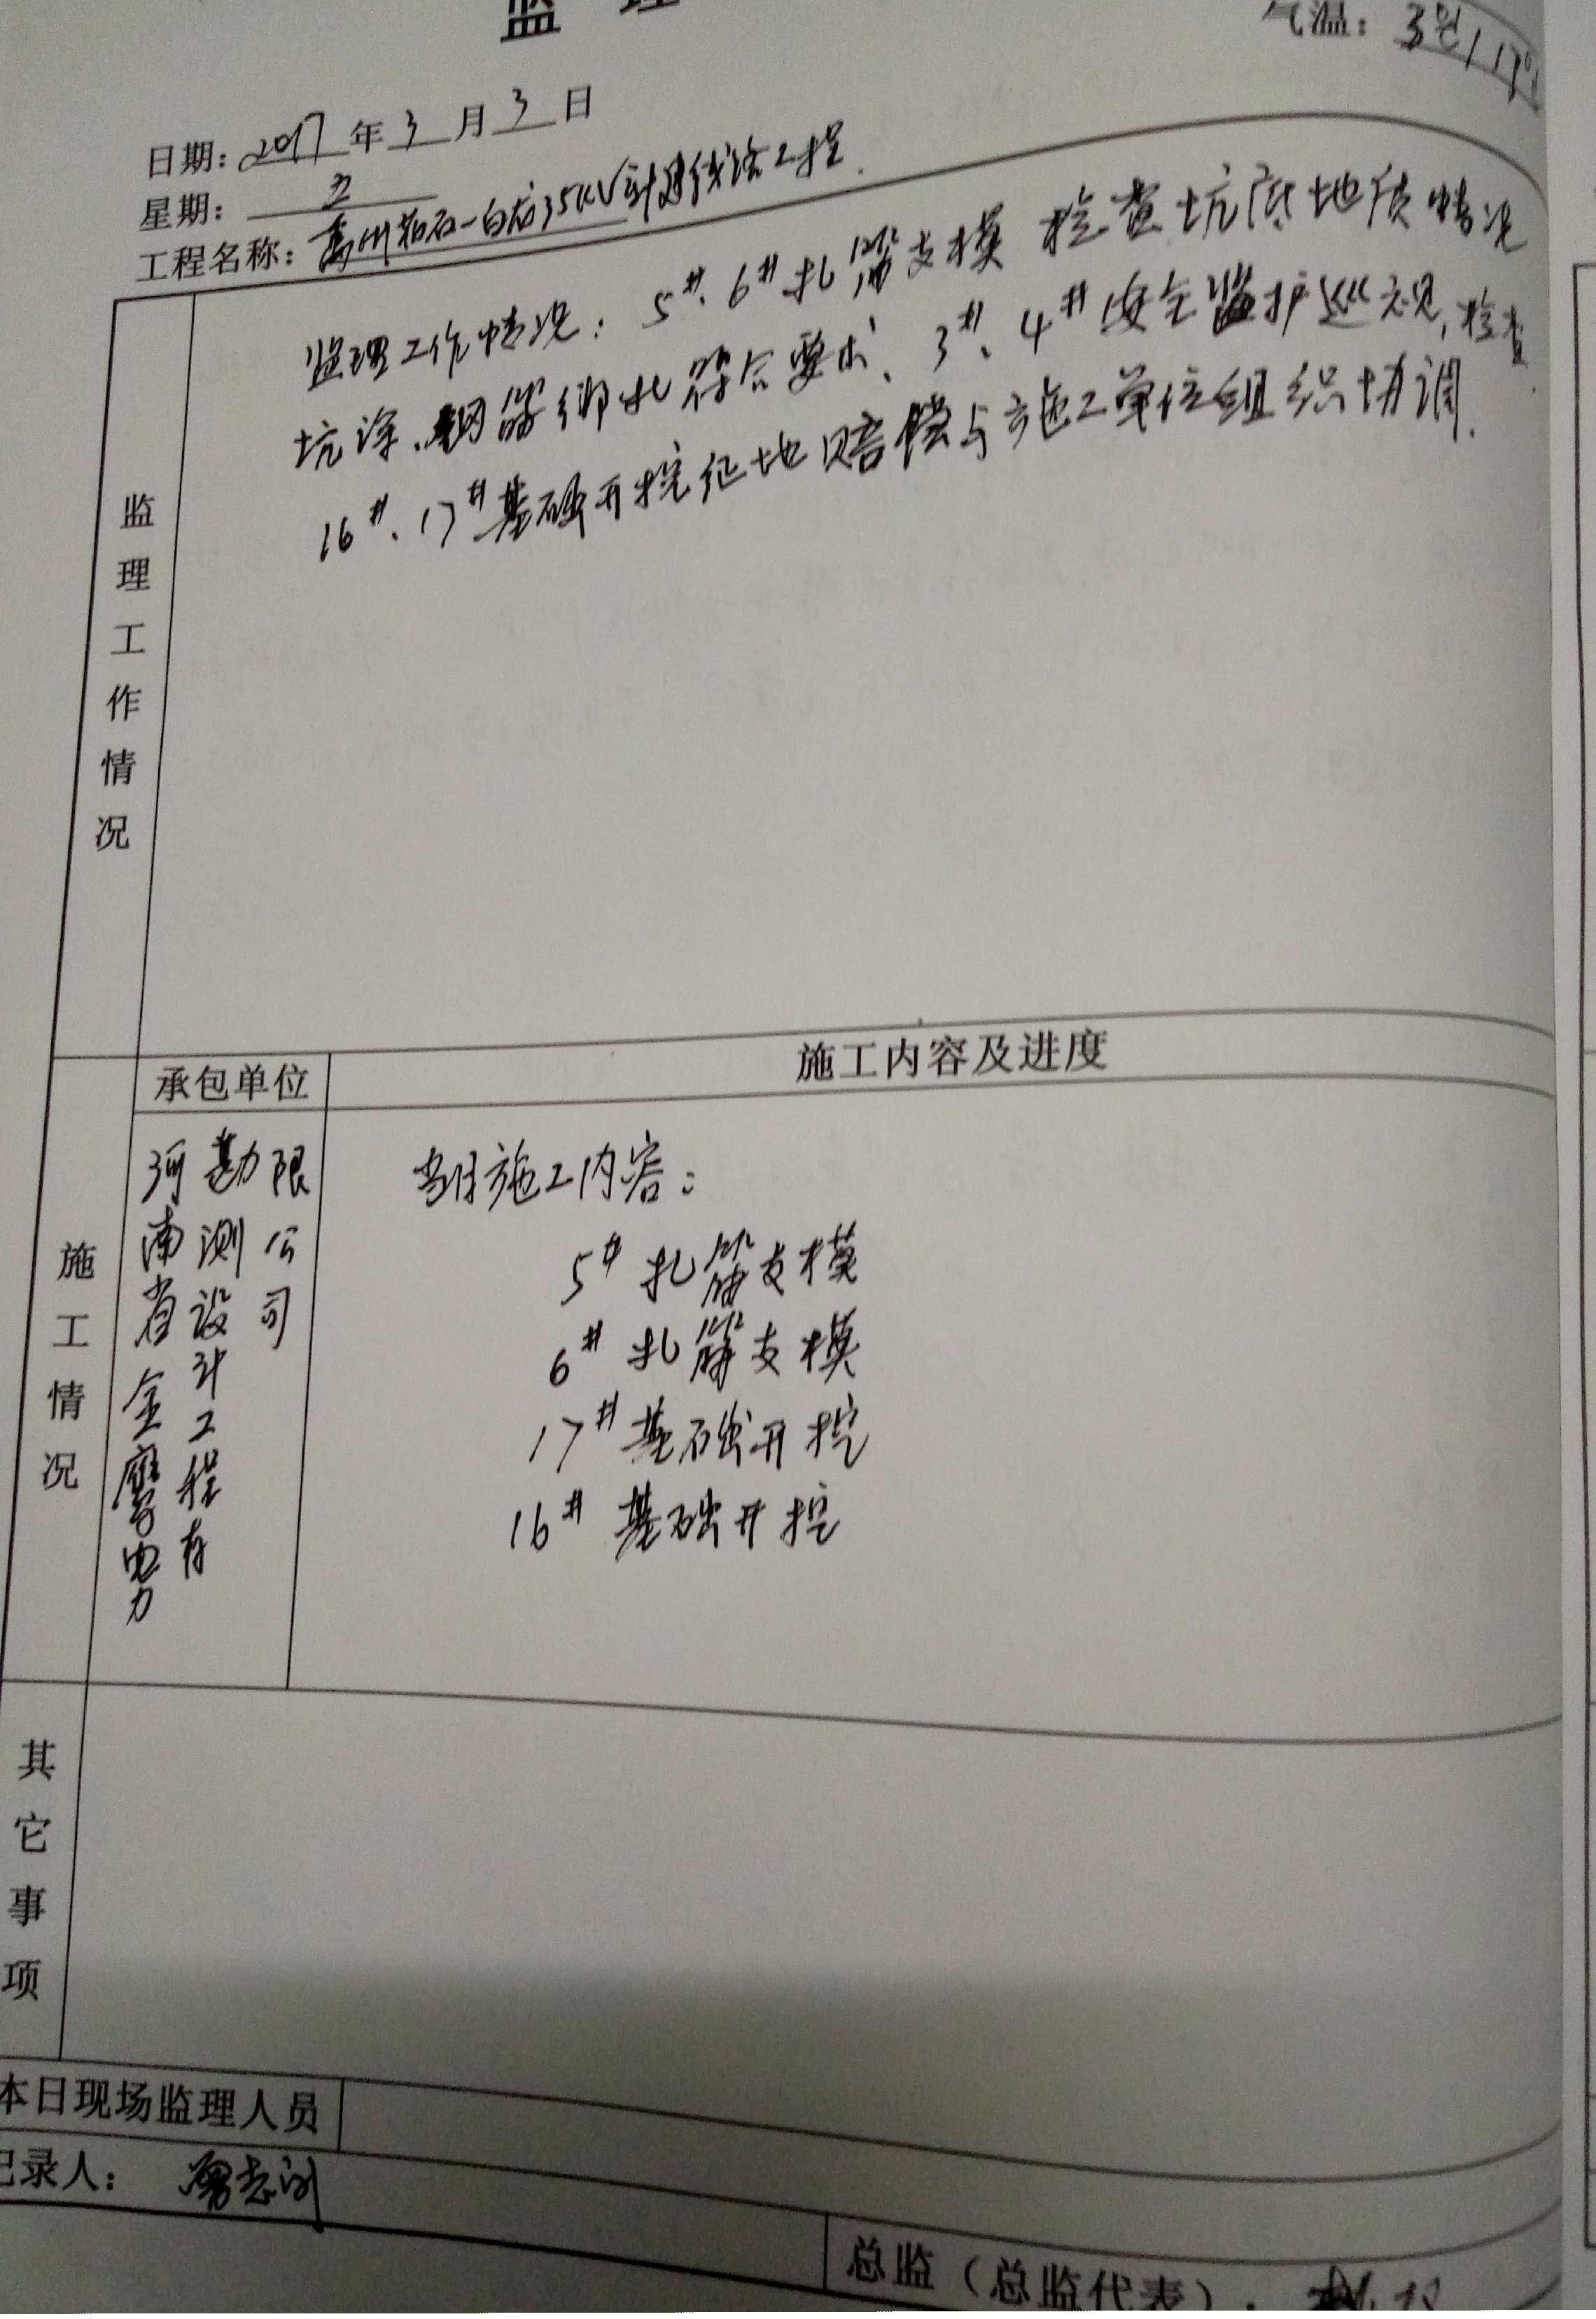 监理
气温：
日期：2017年3月3日
星期：五
工程名称：禹州 35KV 线路工程
监理工作情况
监理工作情况：5#、6#扎筋支模 检查坑底地质情况
坑深、钢筋绑扎符合要求、3#、4#安全监护巡视，检查
16#、17#基础开挖征地赔偿与施工单位组织协调.
施工情况
承包单位
施工内容及进度
河南省金鹰电力
勘测设计工程有
限公司
当日施工内容：
5# 扎筋支模
6# 扎筋支模
17# 基础开挖
16# 基础开挖
其它事项
本日现场监理人员
记录人：
总监（总监代表）：